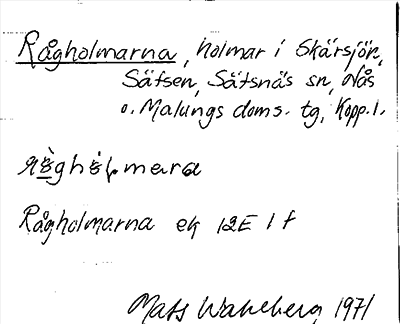 Rågholmarna, holmar i Skärsjön,
Säfsen, Säfsnäs sn, Nås
o. Malungs doms. tg, Kopp. l.
Rågholmarna ek 12E 1 f
Mats Wahlberg 1971